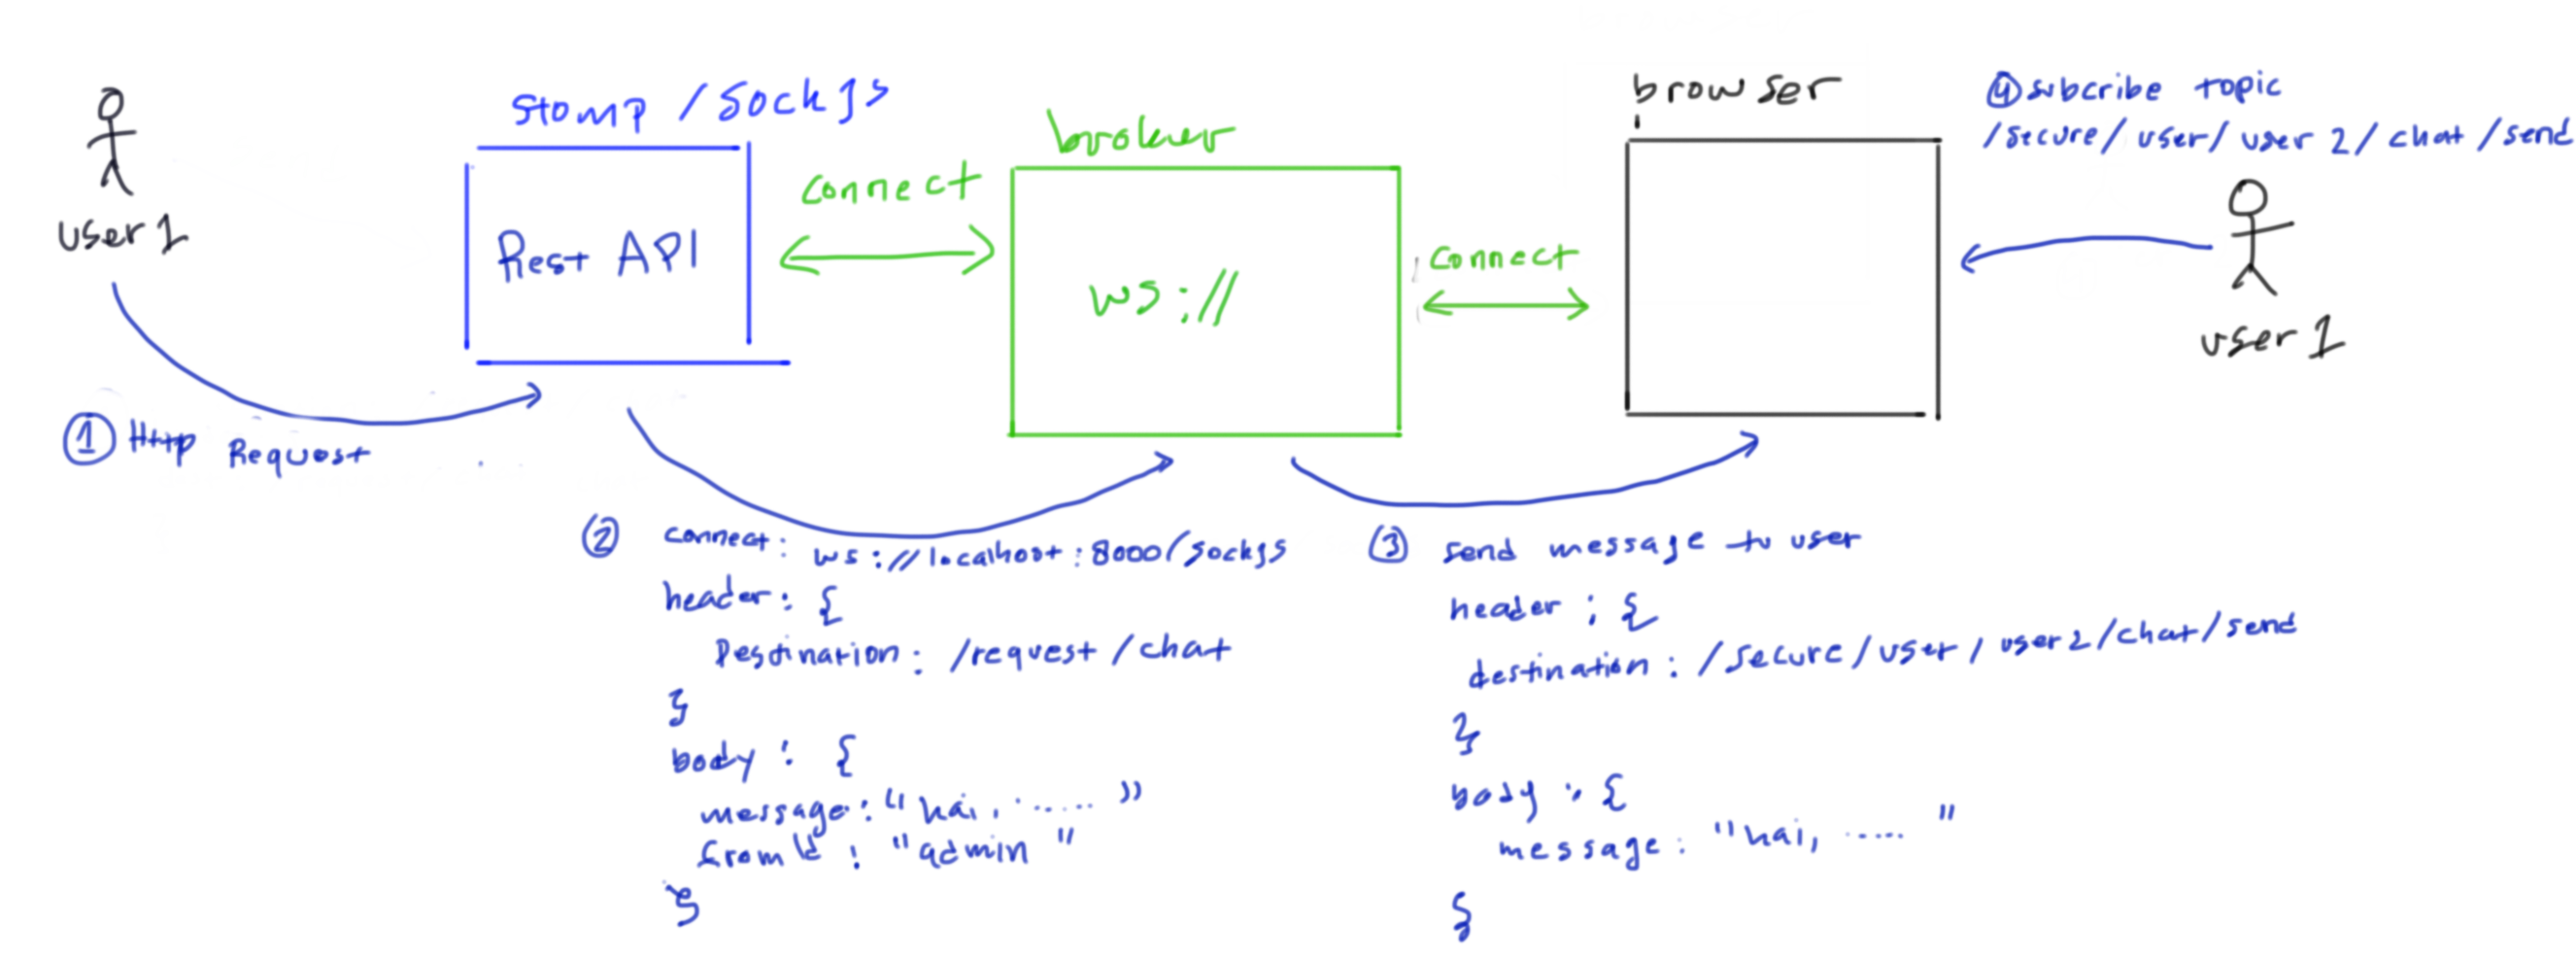 user 1
① Http Request
Stomp / SockJs
Rest API
connect
broker
ws://
connect
browser
④ subcribe topic
/secure/user/user 2/chat/send
user 1
② connect: ws://localhost:8000/sockjs
header: {
Destination: /request/chat
}
body: {
message: "hai, ...... "
fromId: "admin"
}
③ send message to user
header: {
destination: /secure/user/user2/chat/send
}
body: {
message: "hai, ...... "
}